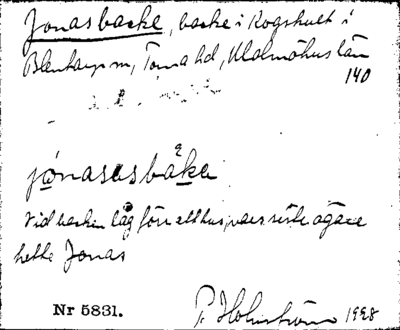 Jonasbacke, backe i Rogshult i
Blentarps sn, Torna hd, Malmöhus län
140
jónasasbåke
Vid backen låg förr ett hus, vars siste ägare
hette Jonas
Nr 5831.
P. Holmström 1928